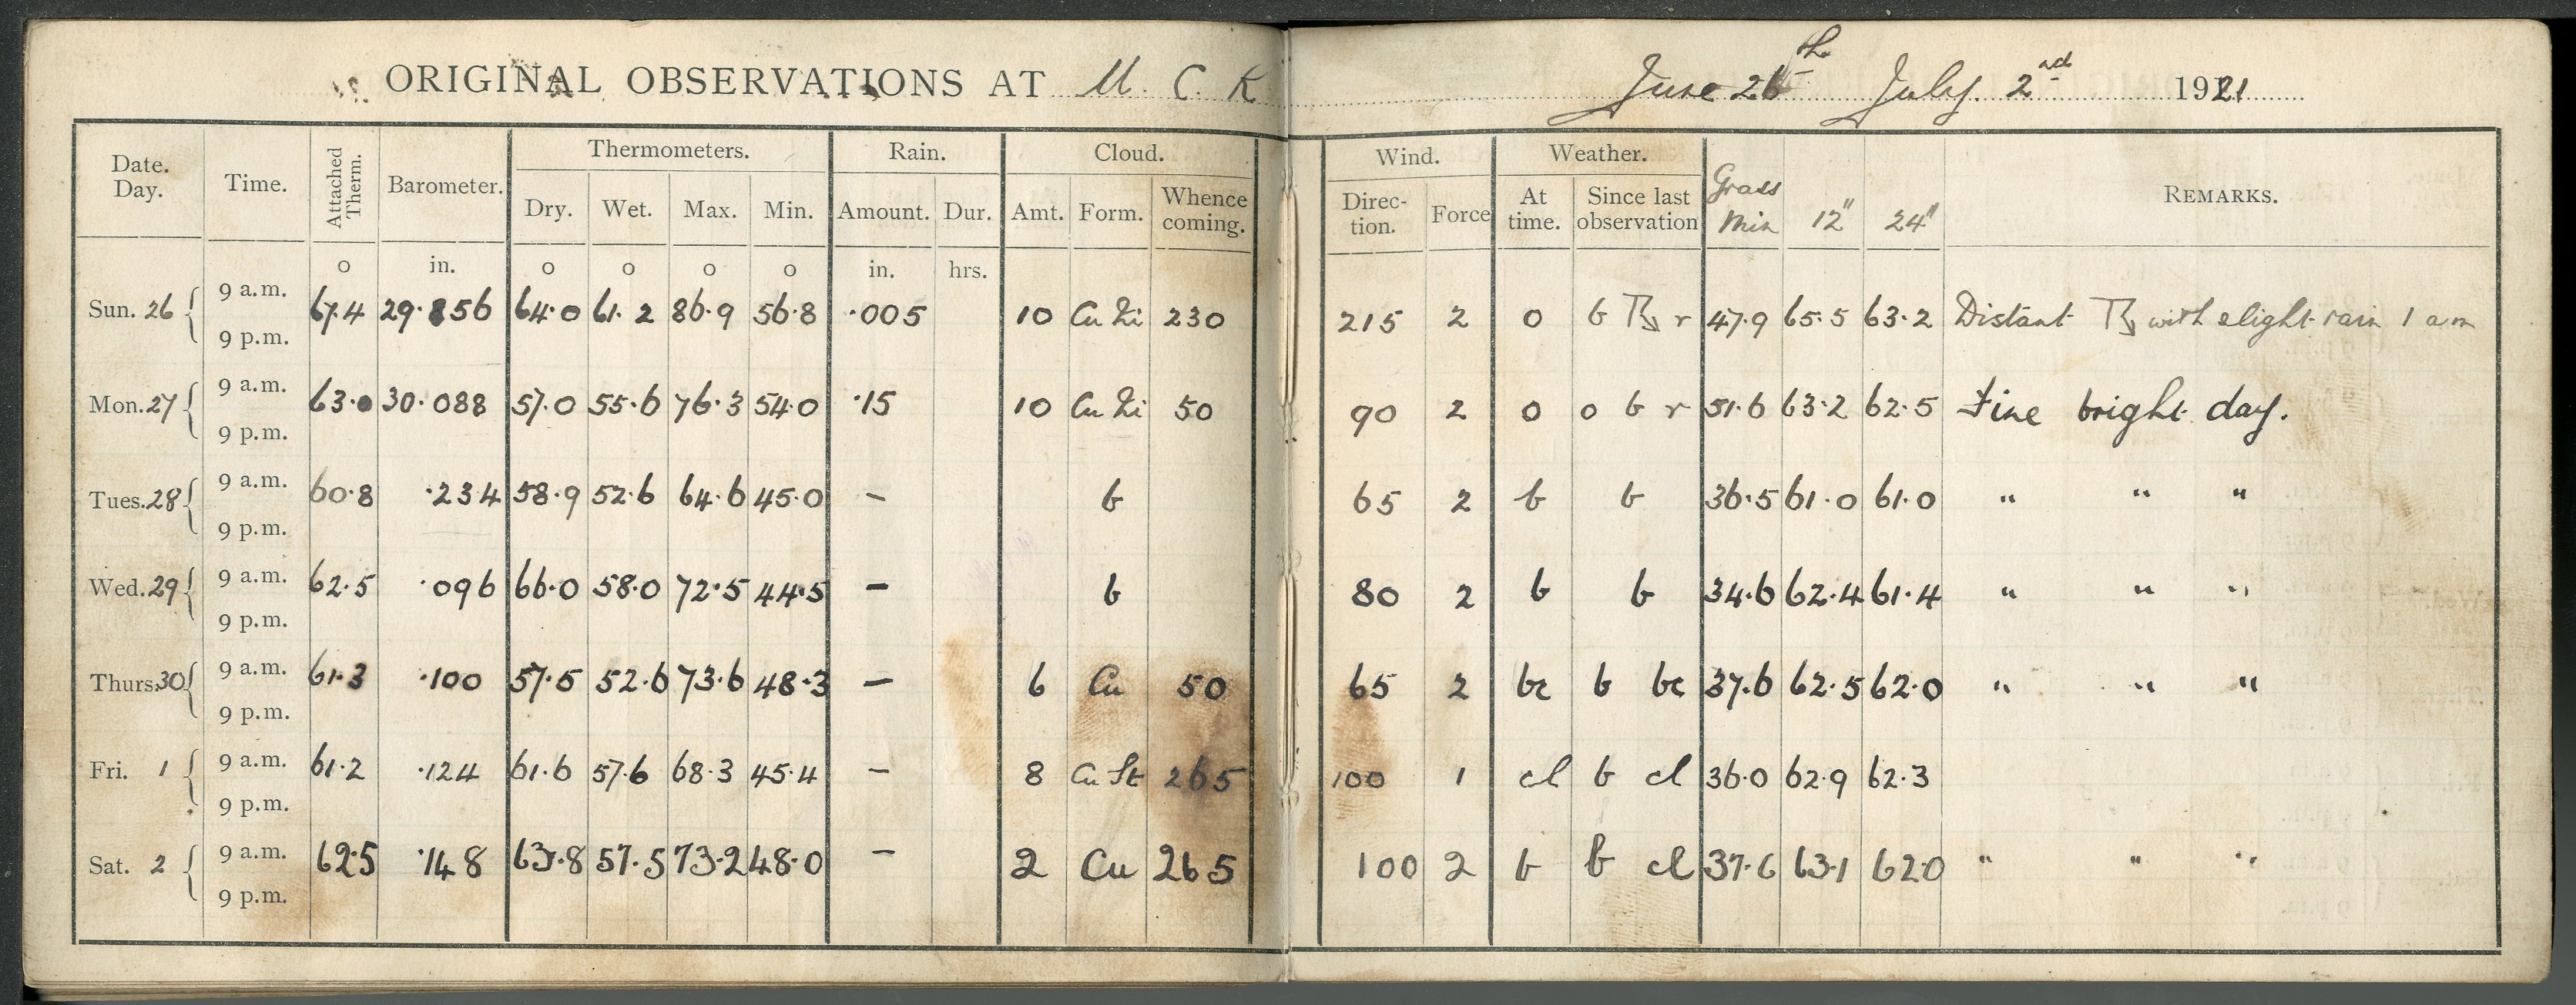 ORIGINAL OBSERVATIONS AT M. C. K June 26th July. 2nd 1921
Date. Day. Time. Attached Therm. Barometer. Thermometers. Rain. Cloud. Wind. Weather. Grass Min 12" 24" REMARKS.
Dry. Wet. Max. Min. Amount. Dur. Amt. Form. Whence coming. Direc- tion. Force At time. Since last observation
o in. o o o o in. hrs.
Sun. 26 9 a.m. 67.4 29.856 64.0 61.2 86.9 56.8 .005 10 Cu Ni 230 215 2 o b r 47.9 65.5 63.2 Distant with slight rain 1 am
9 p.m.
Mon. 27 9 a.m. 63.0 30.088 57.0 55.6 76.3 54.0 .15 10 Cu Ni 50 90 2 o o b r 51.6 63.2 62.5 Fine bright day.
9 p.m.
Tues. 28 9 a.m. 60.8 .234 58.9 52.6 64.6 45.0 – b 65 2 b b 36.5 61.0 61.0 " " "
9 p.m.
Wed. 29 9 a.m. 62.5 .096 66.0 58.0 72.5 44.5 – b 80 2 b b 34.6 62.4 61.4 " " "
9 p.m.
Thurs. 30 9 a.m. 61.3 .100 57.5 52.6 73.6 48.3 – 6 Cu 50 65 2 bc b bc 37.6 62.5 62.0 " " "
9 p.m.
Fri. 1 9 a.m. 61.2 .124 61.6 57.6 68.3 45.4 – 8 Cu St 265 100 1 cl b cl 36.0 62.9 62.3
9 p.m.
Sat. 2 9 a.m. 62.5 .148 63.8 57.5 73.2 48.0 – 2 Cu 265 100 2 b b cl 37.6 63.1 62.0 " " "
9 p.m.